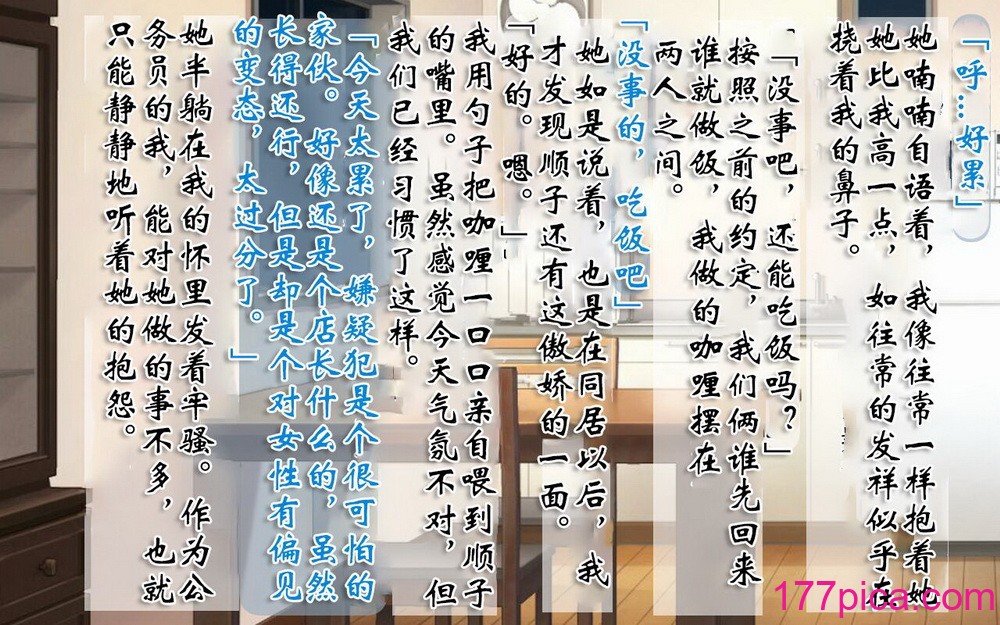 「呼…好累」
她喃喃自语着，我像往常一样抱着她
她比我高一点，如往常的发祥似乎在
挠着我的鼻子。
「没事吧，还能吃饭吗？」
按照之前的约定，我们俩谁先回来
谁就做饭，我做的咖喱摆在
两人之间。
「没事的，吃饭吧」
她如是说着，也是在同居以后，我
才发现顺子还有这傲娇的一面。
「好的。嗯。」
我用勺子把咖喱一口口亲自喂到顺子
的嘴里。虽然感觉今天气氛不对，但
我们已经习惯了这样。
「今天太累了，嫌疑犯是个很可怕的
家伙。好像还是个店长什么的，虽然
长得还行，但是却是个对女性有偏见
的变态，太过分了。」
她半躺在我的怀里发着牢骚。作为公
务员的我，能对她做的事不多，也就
只能静静地听着她的抱怨。
177pica.com